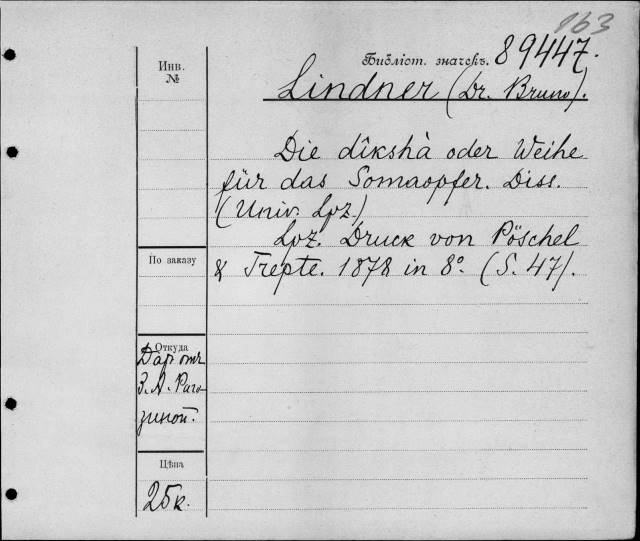 163
Библіот. значекъ. 89447.
Инв.
№
Lindner (Dr. Bruno).
Die dîkshâ oder Weihe
für das Somaopfer. Diss.
(Univ. Lpz.)
Lpz. Druck von Pöschel
& Trepte. 1878 in 8°. (S. 47).
По заказу
Откуда
Дар отъ
З. А. Раго-
зиной.
Цѣна
25 к.